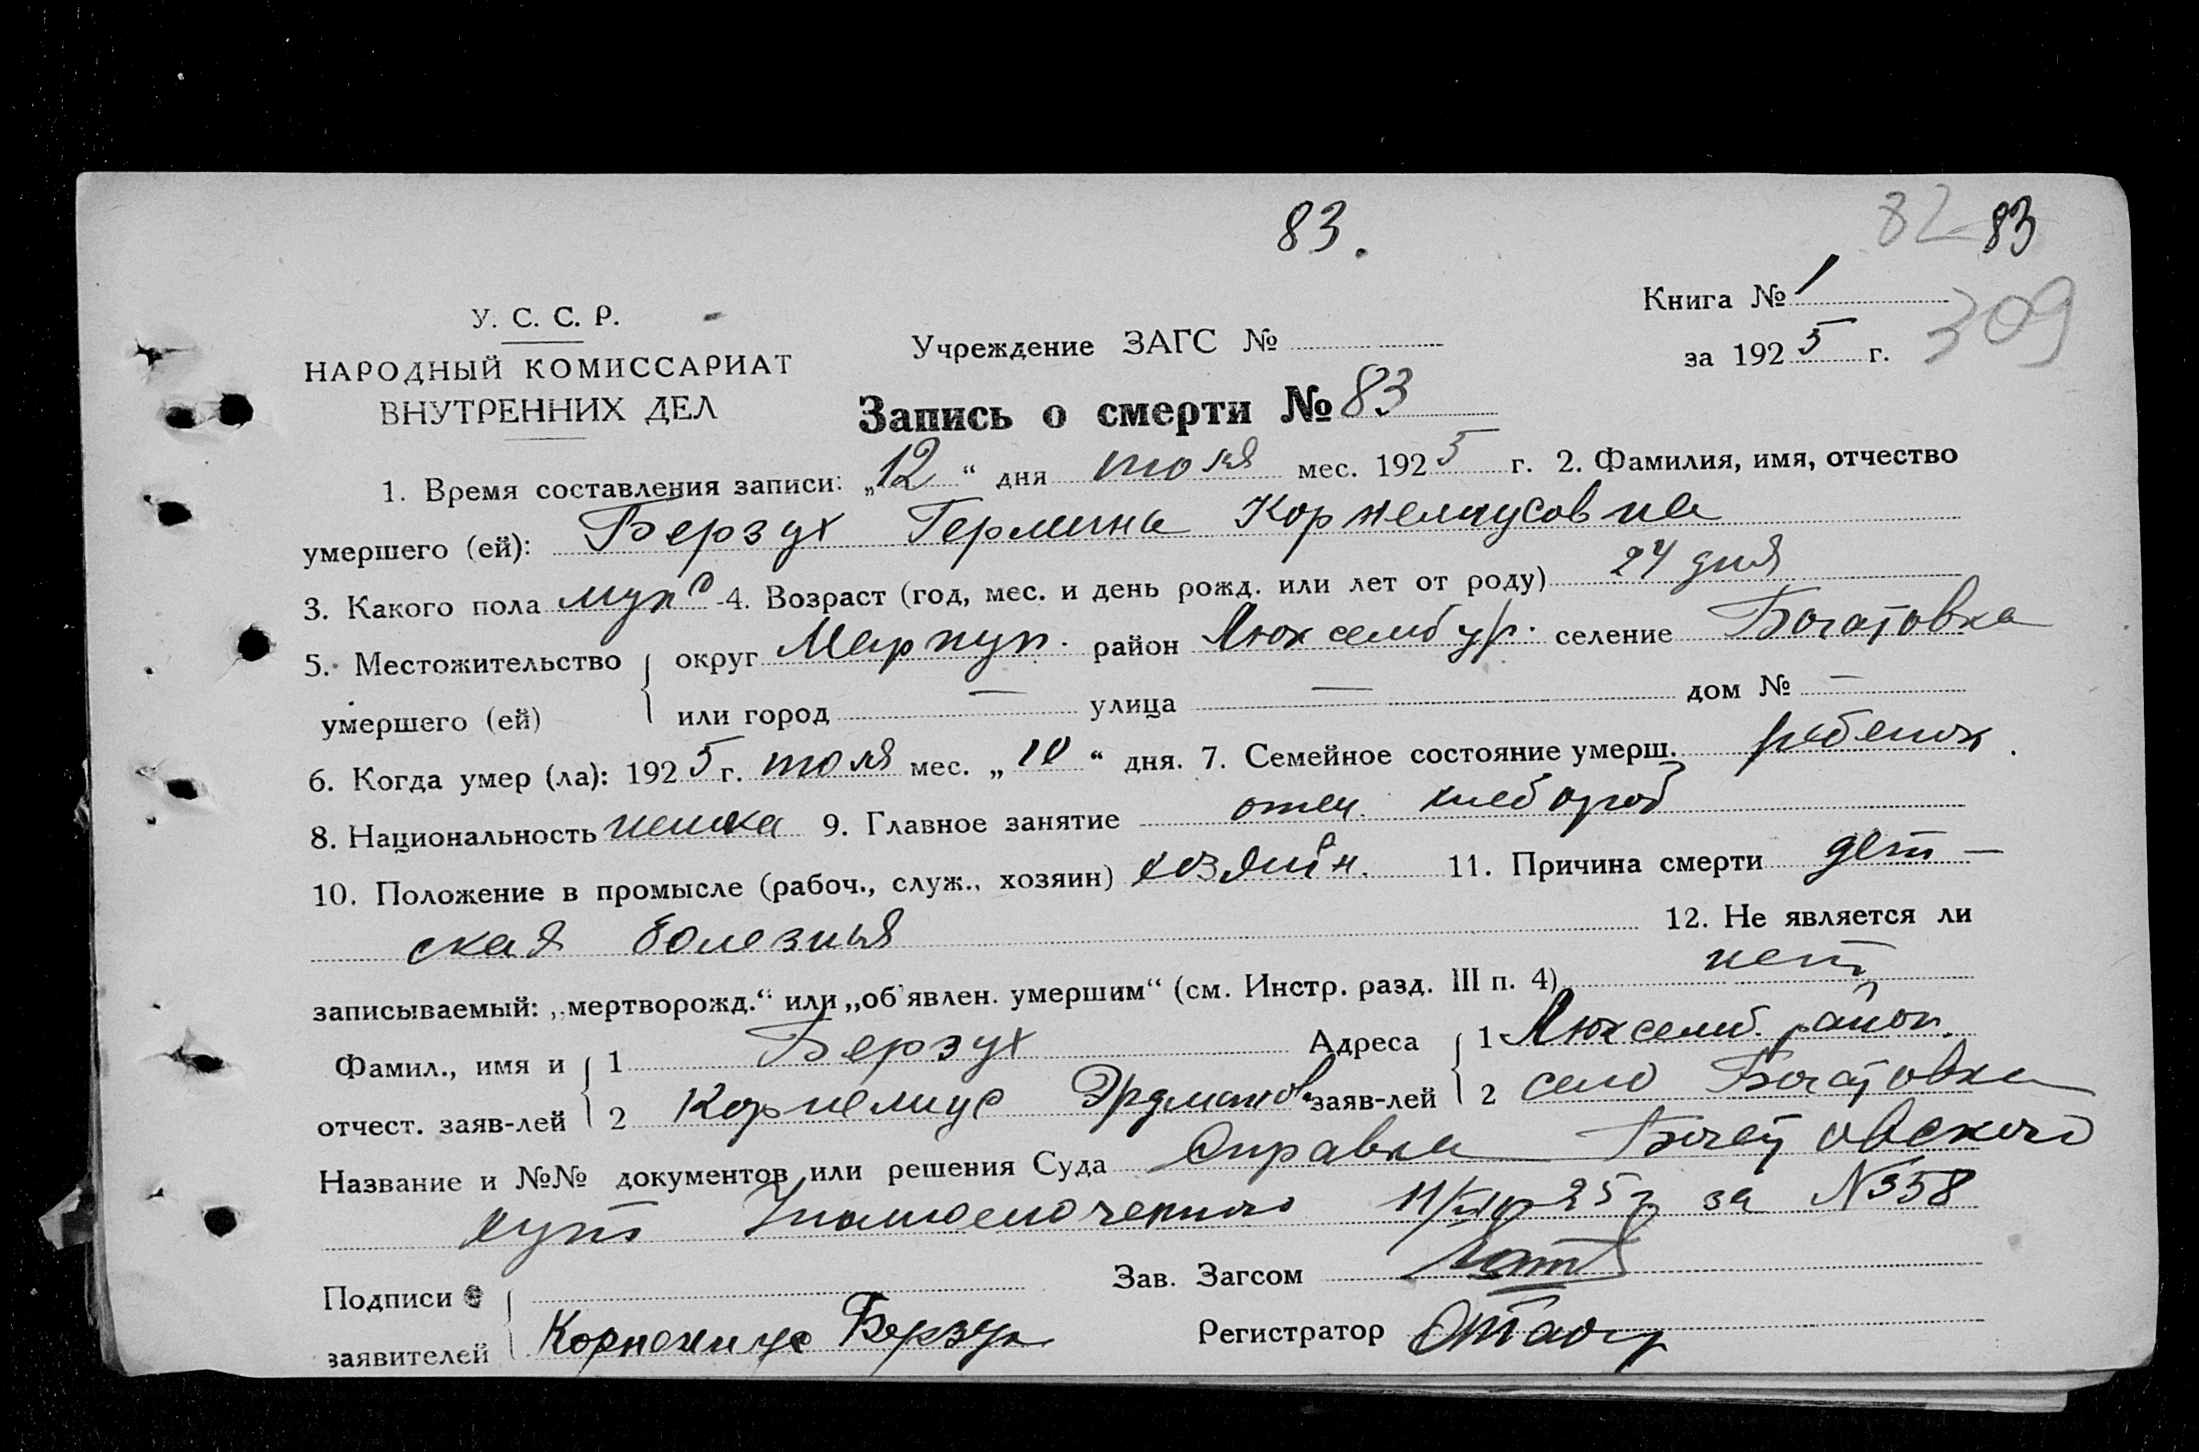 83.
82 83
Книга № 1
309
У. С. С. Р.
НАРОДНЫЙ КОМИССАРИАТ
ВНУТРЕННИХ ДЕЛ
Учреждение ЗАГС №
за 1925 г.
Запись о смерти № 83
1. Время составления записи: „12“ дня июля мес. 1925 г. 2. Фамилия, имя, отчество
умершего (ей): Берзух Гермина Корнелиусовна
3. Какого пола 4. Возраст (год, мес. и день рожд. или лет от роду) 24 дня
5. Местожительство округ Мариуп. район Люксембур. селение Богатовка
умершего (ей) или город — улица — дом № —
6. Когда умер (ла): 1925 г. июля мес. „10“ дня. 7. Семейное состояние умерш. ребенок.
8. Национальность немка 9. Главное занятие отец хлебороб
10. Положение в промысле (рабоч., служ., хозяин) хозяин. 11. Причина смерти дет-
ская болезнь 12. Не является ли
записываемый: „мертворожд.“ или „об'явлен. умершим“ (см. Инстр. разд. III п. 4) нет
Фамил., имя и 1 Берзух Адреса 1 Люксемб. район.
отчест. заяв-лей 2 Корнелиус Эрдманов. заяв-лей 2 село Богатовка
Название и №№ документов или решения Суда Справка Богатовского
Уполномоченного 11/VII 25 г за № 358
Подписи Зав. Загсом
заявителей Корнелиус Берзух Регистратор